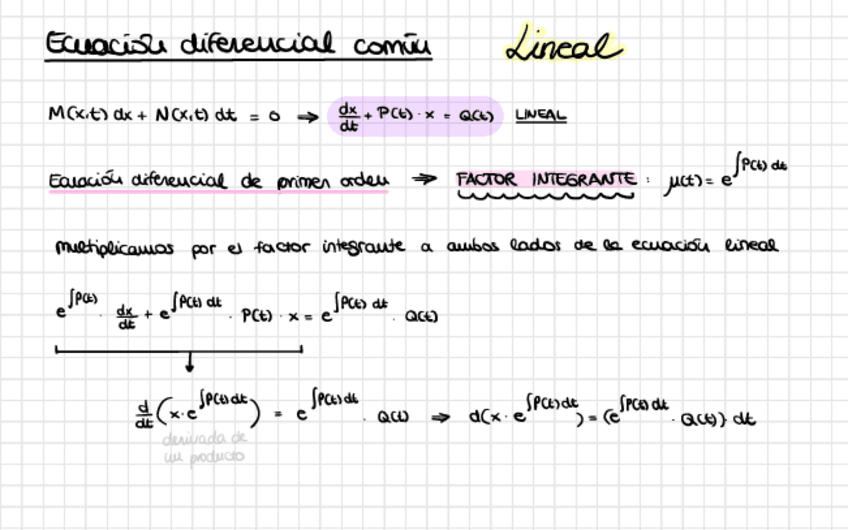 Ecuación diferencial común Lineal
M(x,t) dx + N(x,t) dt = 0 ⇒ dx/dt + P(t) · x = Q(t) LINEAL
Ecuación diferencial de primer orden ⇒ FACTOR INTEGRANTE: μ(t) = e^∫P(t) dt
multiplicamos por el factor integrante a ambos lados de la ecuación lineal
e^∫P(t) · dx/dt + e^∫P(t) dt · P(t) · x = e^∫P(t) dt · Q(t)
d/dt (x · e^∫P(t) dt) = e^∫P(t) dt · Q(t) ⇒ d(x · e^∫P(t) dt) = (e^∫P(t) dt · Q(t)) dt
derivada de
un producto